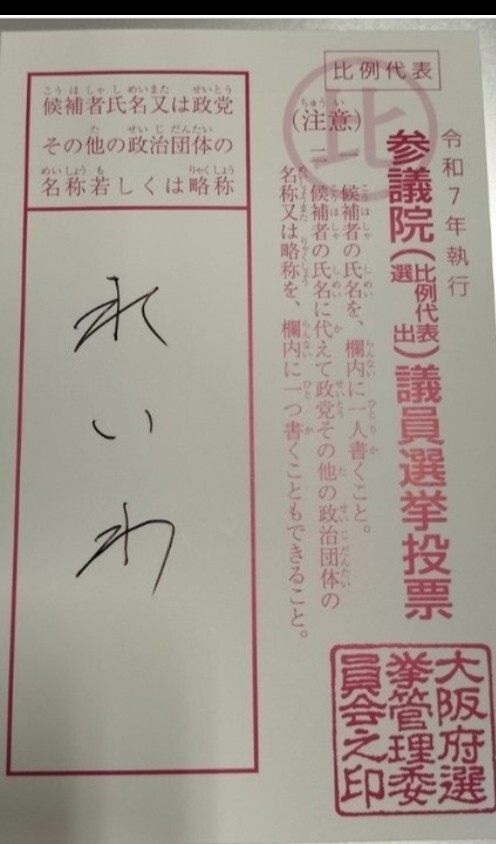 比例代表
比
令和7年執行
参議院(比例代表選出)議員選挙投票
(注意)
一 候補者の氏名を、欄内に一人書くこと。
二 候補者の氏名に代えて政党その他の政治団体の
名称又は略称を、欄内に一つ書くこともできること。
候補者氏名又は政党
その他の政治団体の
名称若しくは略称
れいわ
大阪府選
挙管理委
員会之印